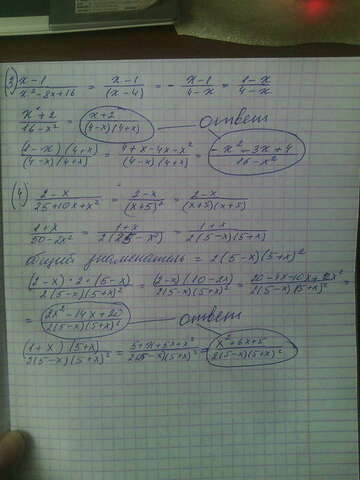 3) x-1/x²-8x+16 = x-1/(x-4) = - x-1/4-x = 1-x/4-x
x+2/16-x² = x+2/(4-x)(4+x) ответ
(1-x)(4+x)/(4-x)(4+x) = 4+x-4x-x²/(4-x)(4+x) = -x²-3x+4/16-x²
4) 2-x/25+10x+x² = 2-x/(x+5)² = 2-x/(x+5)(x+5)
1+x/50-2x² = 1+x/2(25-x²) = 1+x/2(5-x)(5+x)
общий знаменатель = 2(5-x)(5+x)²
(2-x)·2·(5-x)/2(5-x)(5+x)² = (2-x)(10-2x)/2(5-x)(5+x)² = 20-4x-10x+2x²/2(5-x)(5+x)² =
= 2x²-14x+20/2(5-x)(5+x)² ответ
(1+x)(5+x)/2(5-x)(5+x)² = 5+x+5x+x²/2(5-x)(5+x)² = x²+6x+5/2(5-x)(5+x)²